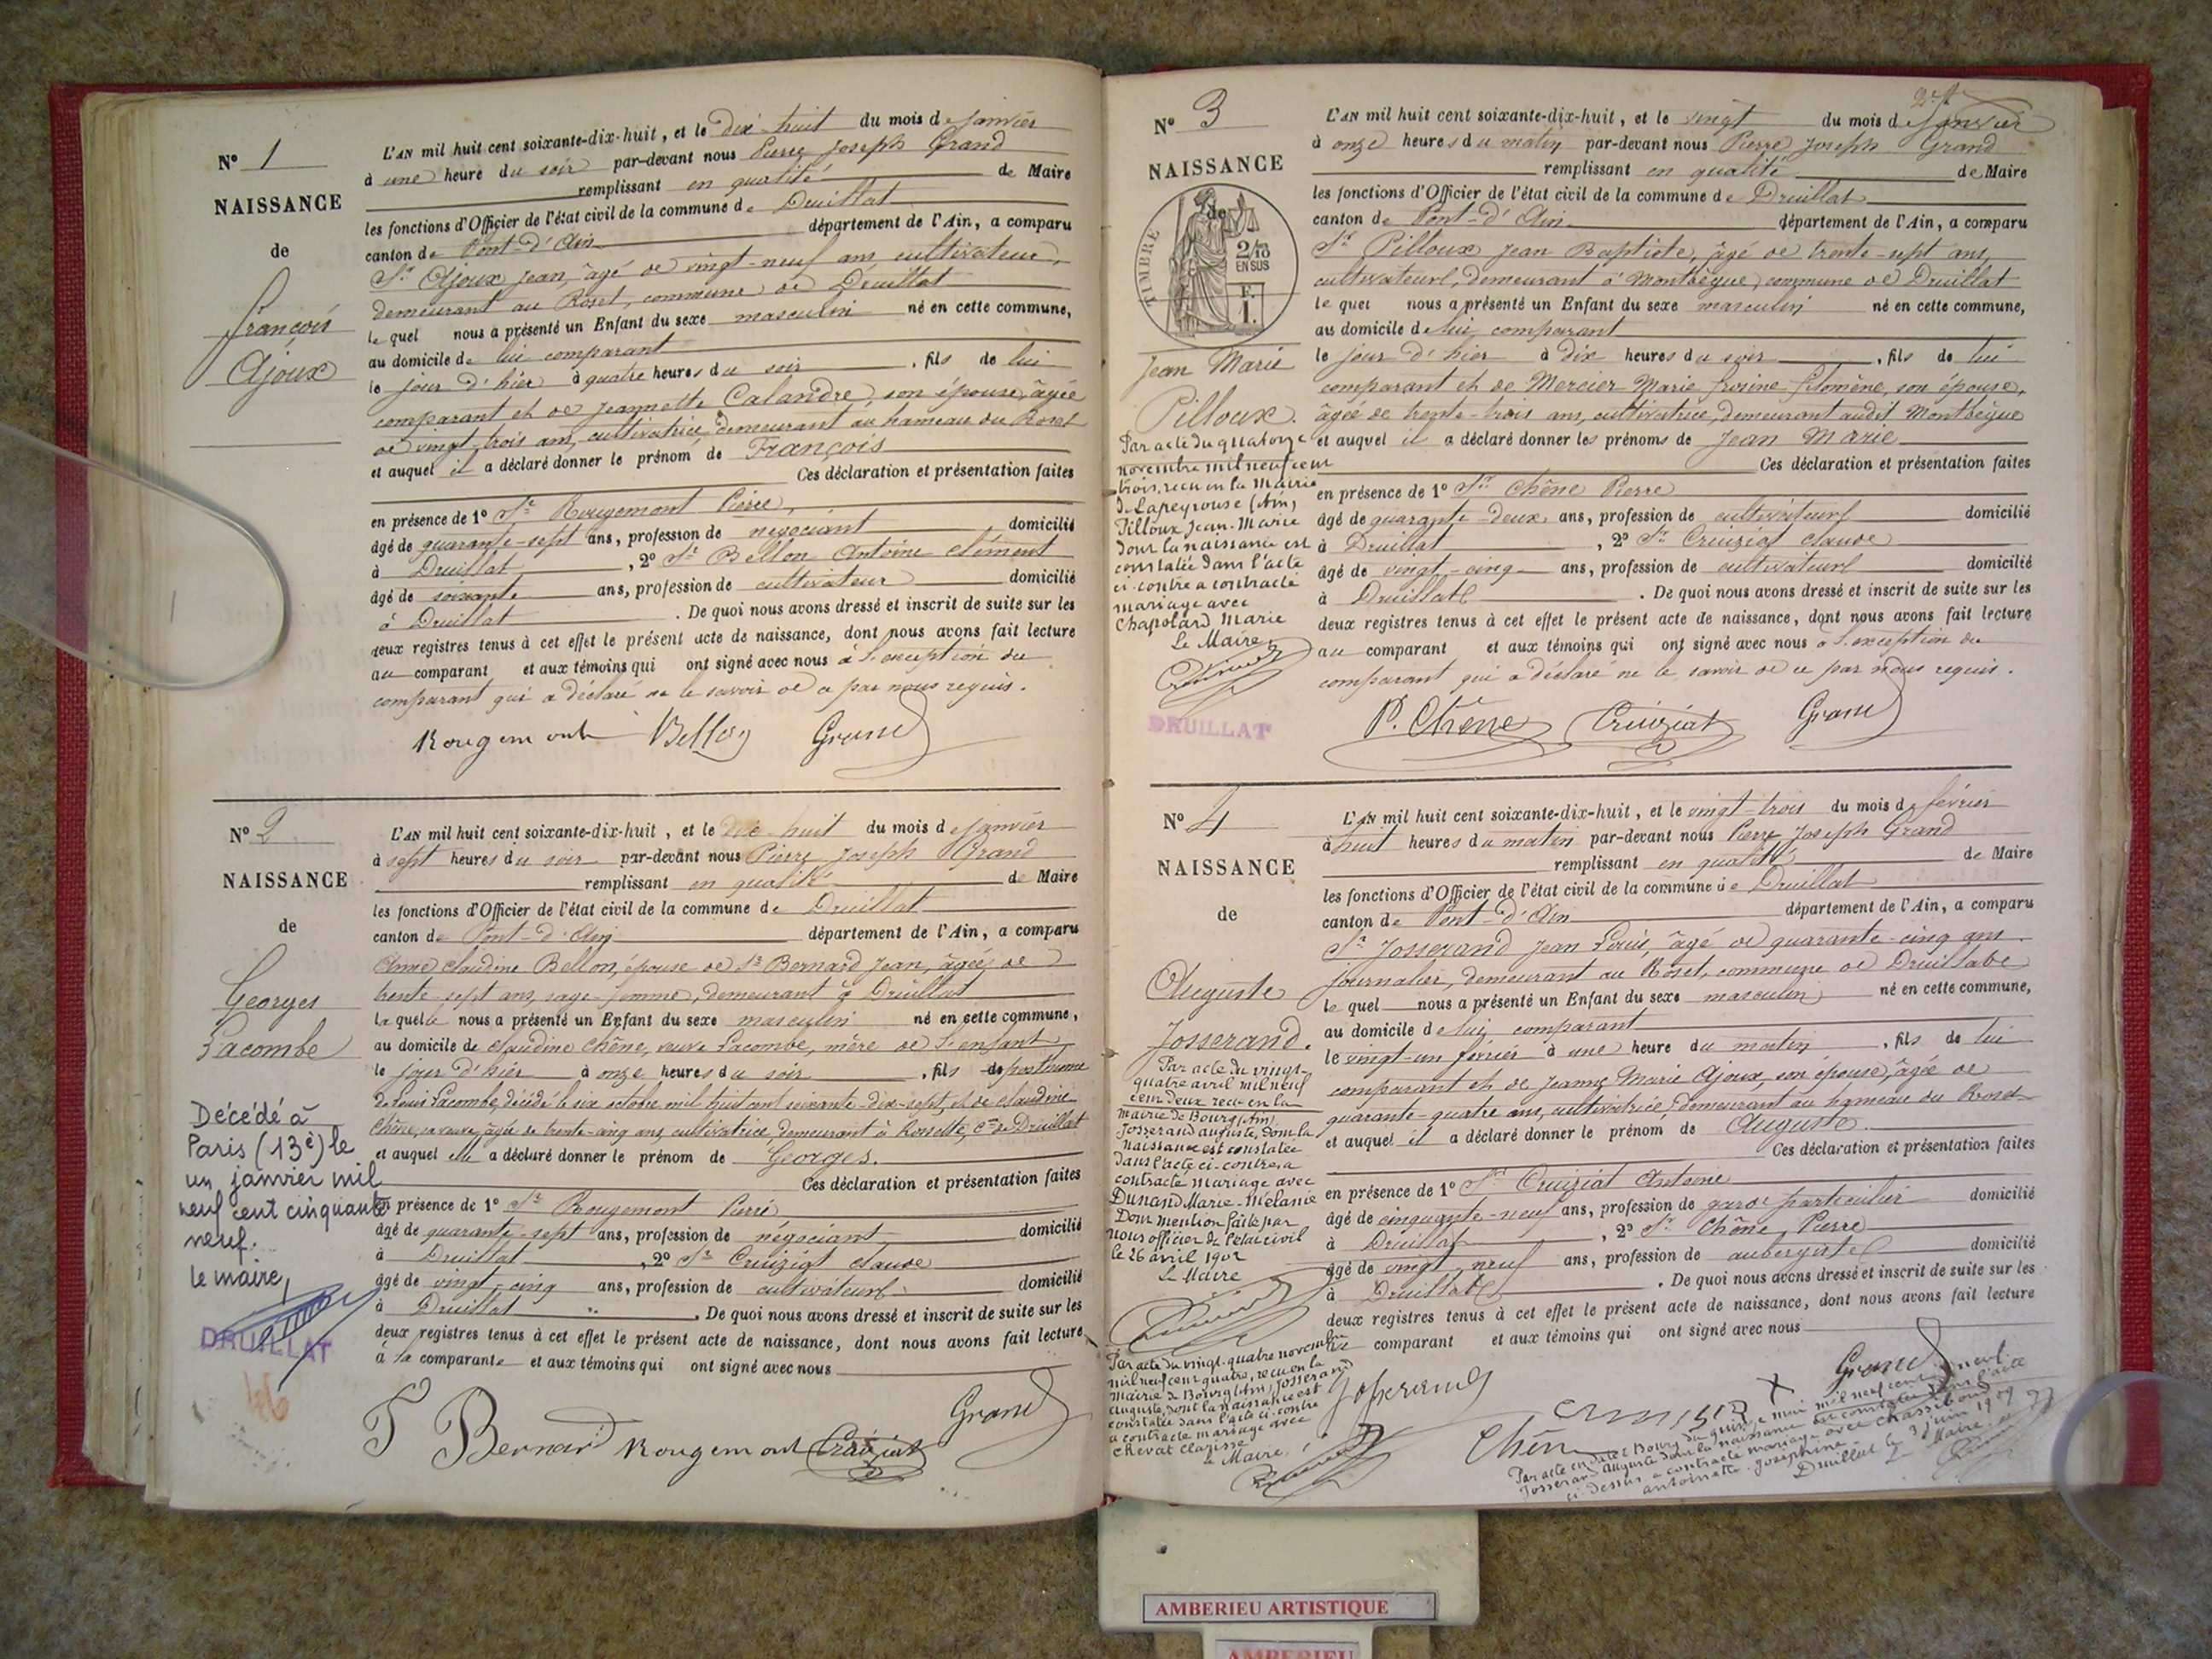 N° 1
NAISSANCE
de
François
Ajoux
L'AN mil huit cent soixante-dix-huit, et le dix-huit du mois de janvier
à une heure du soir par-devant nous Pierre Joseph Grand
remplissant en qualité de Maire
les fonctions d'Officier de l'état civil de la commune de Druillat
canton de Pont-d'Ain département de l'Ain, a comparu
Sr Ajoux Jean, âgé de vingt-neuf ans cultivateur,
demeurant au Roset, commune de Druillat
le quel nous a présenté un Enfant du sexe masculin né en cette commune,
au domicile de lui comparant
le jour d'hier à quatre heures du soir, fils de lui
comparant et de Jeannette Calandre, son épouse, âgée
de vingt-trois ans, cultivatrice, demeurant au hameau du Roset
et auquel il a déclaré donner le prénom de François
Ces déclaration et présentation faites
en présence de 1° Sr Rougemont Pierre,
âgé de quarante-sept ans, profession de négociant domicilié
à Druillat, 2° Sr Bellon Antoine Clément
âgé de soixante ans, profession de cultivateur domicilié
à Druillat. De quoi nous avons dressé et inscrit de suite sur les
deux registres tenus à cet effet le présent acte de naissance, dont nous avons fait lecture
au comparant et aux témoins qui ont signé avec nous à l'exception du
comparant qui a déclaré ne le savoir de ce par nous requis.
Rougemont Bellon Grand
N° 2
NAISSANCE
de
Georges
Lacombe
Décédé à
Paris (13e) le
un janvier mil
neuf cent cinquante
neuf.
le maire,
DRUILLAT
46
L'AN mil huit cent soixante-dix-huit, et le dix huit du mois de janvier
à sept heures du soir par-devant nous Pierre Joseph Grand
remplissant en qualité de Maire
les fonctions d'Officier de l'état civil de la commune de Druillat
canton de Pont-d'Ain département de l'Ain, a comparu
Anne Claudine Bellon, épouse de Sr Bernard Jean, âgée de
trente-sept ans, sage-femme, demeurant à Druillat
laquelle nous a présenté un Enfant du sexe masculin né en cette commune,
au domicile de Claudine Chêne, veuve Lacombe, mère de l'enfant
le jour d'hier à onze heures du soir, fils posthume
de Louis Lacombe, décédé le six octobre mil huit cent soixante-dix-sept, et de Claudine
Chêne, sa veuve, âgée de trente-cinq ans, cultivatrice, demeurant à Rossette, Cne de Druillat
et auquel elle a déclaré donner le prénom de Georges.
Ces déclaration et présentation faites
en présence de 1° Sr Rougemont Pierre
âgé de quarante-sept ans, profession de négociant domicilié
à Druillat, 2° Sr Cruiziat Claude
âgé de vingt-cinq ans, profession de cultivateur domicilié
à Druillat. De quoi nous avons dressé et inscrit de suite sur les
deux registres tenus à cet effet le présent acte de naissance, dont nous avons fait lecture
à la comparante et aux témoins qui ont signé avec nous
F Bernard Rougemont Cruiziat Grand
N° 3
NAISSANCE
de
TIMBRE
2/10
EN SUS
Jean Marie
Pilloux.
Par acte du quatorze
novembre mil neuf cent
trois, reçu en la Mairie
de Lapeyrouse (Ain)
Pilloux Jean-Marie
dont la naissance est
constatée dans l'acte
ci-contre a contracté
mariage avec
Chapolard Marie
Le Maire,
DRUILLAT
L'AN mil huit cent soixante-dix-huit, et le vingt du mois de janvier
à onze heures du matin par-devant nous Pierre Joseph Grand
remplissant en qualité de Maire
les fonctions d'Officier de l'état civil de la commune de Druillat
canton de Pont-d'Ain département de l'Ain, a comparu
Sr Pilloux Jean Baptiste, âgé de trente-sept ans,
cultivateur, demeurant à Montbègue, commune de Druillat
le quel nous a présenté un Enfant du sexe masculin né en cette commune,
au domicile de lui comparant
le jour d'hier à dix heures du soir, fils de lui
comparant et de Mercier Marie Frosine Filomène, son épouse,
âgée de trente-trois ans, cultivatrice, demeurant audit Montbègue
et auquel il a déclaré donner les prénoms de Jean Marie
Ces déclaration et présentation faites
en présence de 1° Sr Chêne Pierre
âgé de quarante-deux ans, profession de cultivateur domicilié
à Druillat, 2° Sr Cruiziat Claude
âgé de vingt-cinq ans, profession de cultivateur domicilié
à Druillat. De quoi nous avons dressé et inscrit de suite sur les
deux registres tenus à cet effet le présent acte de naissance, dont nous avons fait lecture
au comparant et aux témoins qui ont signé avec nous à l'exception du
comparant qui a déclaré ne le savoir de ce par nous requis.
P. Chêne Cruiziat Grand
N° 4
NAISSANCE
de
Auguste
Josserand.
Par acte du vingt-
quatre avril mil neuf
cent deux reçu en la
mairie de Bourg (Ain)
Josserand Auguste, dont la
naissance est constatée
dans l'acte ci-contre, a
contracté mariage avec
Dunand Marie-Mélanie
Dont mention faite par
nous officier de l'état civil
le 26 avril 1902
Le Maire
Par acte du vingt-quatre novembre
mil neuf cent quatre, reçu en la
mairie de Bourg (Ain) Josserand
Auguste, dont la naissance est
constatée dans l'acte ci-contre
a contracté mariage avec
Chevat Clarisse
Le Maire,
L'AN mil huit cent soixante-dix-huit, et le vingt-trois du mois de février
à huit heures du matin par-devant nous Pierre Joseph Grand
remplissant en qualité de Maire
les fonctions d'Officier de l'état civil de la commune de Druillat
canton de Pont-d'Ain département de l'Ain, a comparu
Sr Josserand Jean Louis, âgé de quarante-cinq ans
journalier, demeurant au Roset, commune de Druillat
le quel nous a présenté un Enfant du sexe masculin né en cette commune,
au domicile de lui comparant
le vingt-un février à une heure du matin, fils de lui
comparant et de Jeanne Marie Ajoux, son épouse, âgée de
quarante-quatre ans, cultivatrice, demeurant au hameau du Roset
et auquel il a déclaré donner le prénom de Auguste.
Ces déclaration et présentation faites
en présence de 1° Sr Cruiziat Antoine
âgé de cinquante-neuf ans, profession de garde particulier domicilié
à Druillat, 2° Sr Chêne Pierre
âgé de vingt neuf ans, profession de aubergiste domicilié
à Druillat. De quoi nous avons dressé et inscrit de suite sur les
deux registres tenus à cet effet le présent acte de naissance, dont nous avons fait lecture
au comparant et aux témoins qui ont signé avec nous
Josserand Grand
Chêne
Par acte en date à Bourg du quinze mai mil neuf cent neuf.
Josserand Auguste dont la naissance est consignée dans l'acte
ci-dessus a contracté mariage avec Chassibout
Antoinette Joséphine.
Druillat le 3 juin 1909
Le Maire
AMBERIEU ARTISTIQUE
AMBERIEU